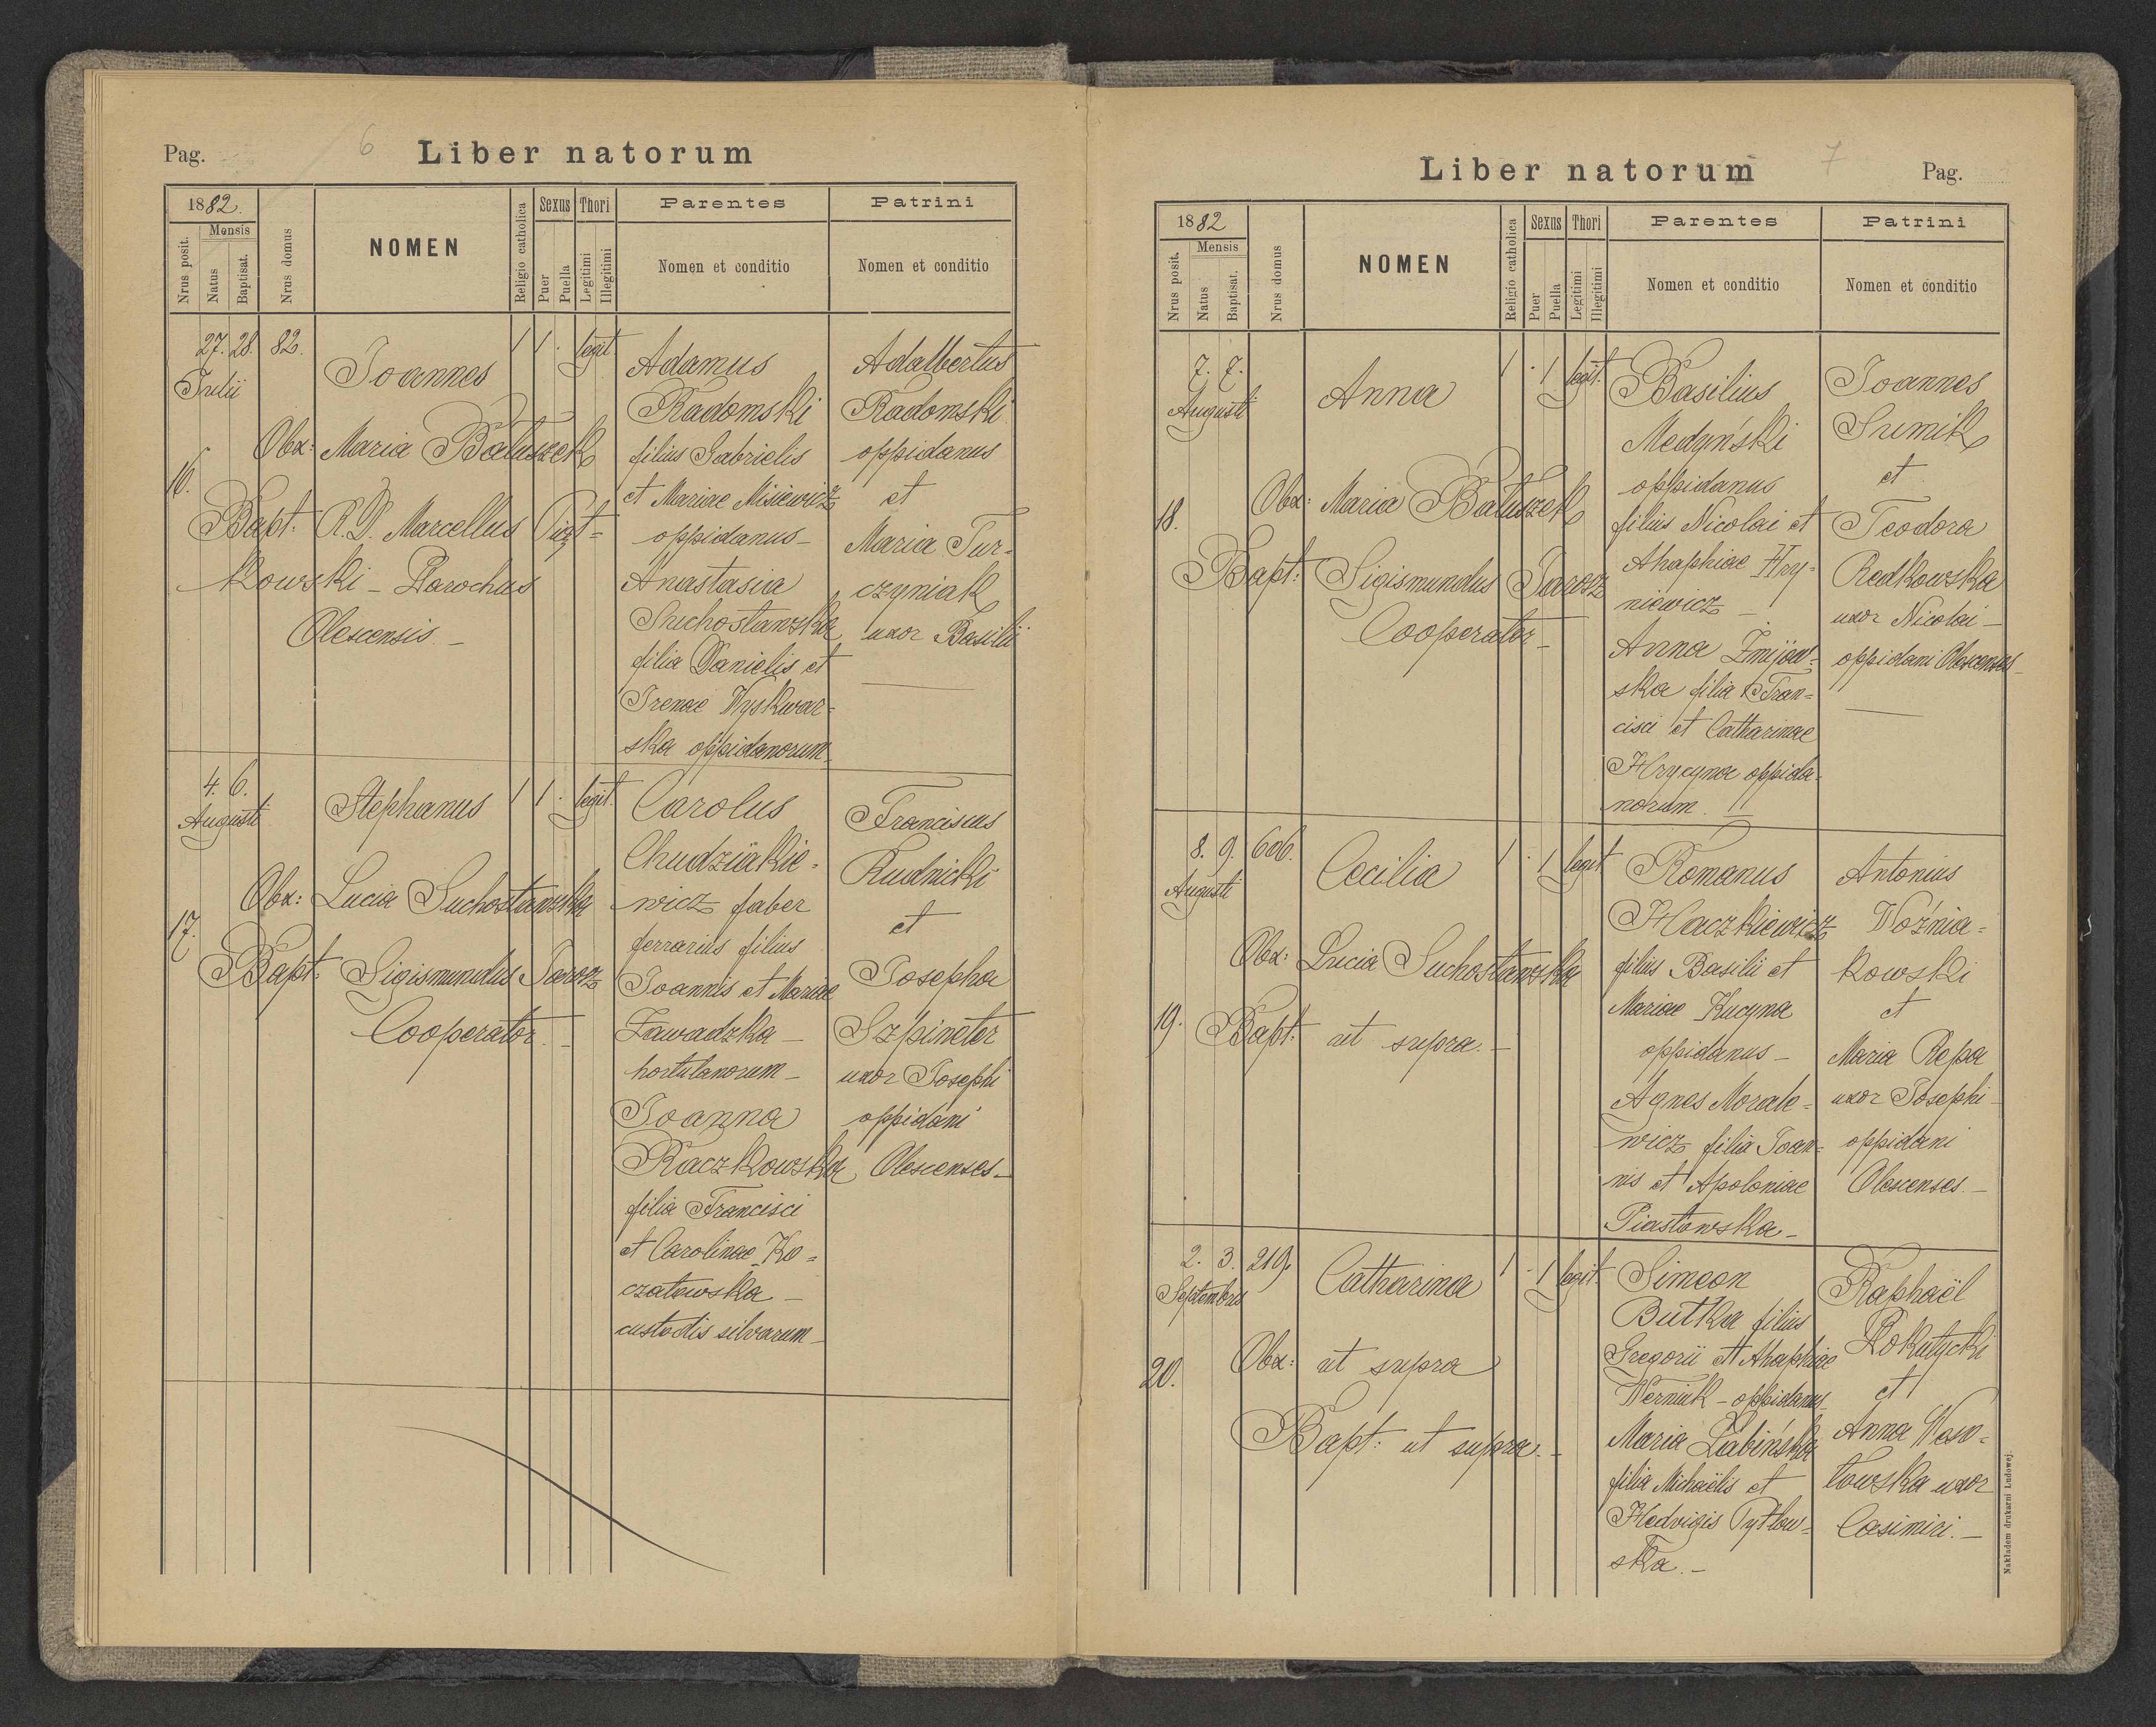 Pag.
6
Liber natorum
1882.
Mensis
Nrus posit.
Natus
Baptisat.
Nrus domus
NOMEN
Religio catholica
Sexus
Puer
Puella
Thori
Legitimi
Illegitimi
Parentes
Nomen et conditio
Patrini
Nomen et conditio
16.
27. 28. 82.
Julii
Joannes
1 1 . legit.
Obx: Maria Bałuszek
Bapt: R.D. Marcellus
kowski – Parochus
Olescensis. –
Adamus
Radomski
filius Gabrielis
et Mariae Misiewicz
oppidanus –
Anastasia
Suchostawska
filia Danielis et
Irenae Wyskwar-
ska oppidanorum.
Adalbertus
Radomski
oppidanus
et
Maria Tur-
czyniak
uxor Basilii
17.
4. 6.
Augusti
Stephanus
1 1 . legit.
Obx: Lucia Suchostawska
Bapt: Sigismundus Jarosz
Cooperator. –
Carolus
Chudziakie-
wicz faber
ferrarius filius
Joannis et Mariae
Zawadzka –
hortulanorum –
Joanna
Raczkowska
filia Francisci
et Carolinae Ko-
czatowska –
custodis silvarum –
Franciscus
Rudnicki
et
Josepha
Szpineter
uxor Josephi
oppidani
Olescenses –
Liber natorum
7
Pag.
1882
Mensis
Nrus posit.
Natus
Baptisat.
Nrus domus
NOMEN
Religio catholica
Sexus
Puer
Puella
Thori
Legitimi
Illegitimi
Parentes
Nomen et conditio
Patrini
Nomen et conditio
18.
7. 7.
Augusti
Anna
1 . 1 legit.
Obx: Maria Bałuszek
Bapt: Sigismundus Jarosz
Cooperator –
Basilius
Medyński
oppidanus
filius Nicolai et
Ahaphiae Hry-
niewicz –
Anna Żmijow-
ska filia Fran-
cisci et Catharinae
Hrycyna oppida-
norum.
Joannes
Sumik
et
Teodora
Redkowska
uxor Nicolai –
oppidani Olescenses
19.
8. 9. 606.
Augusti
Cecilia
1 . 1 legit
Obx: Lucia Suchostawska
Bapt: ut supra. –
Romanus
Haczkiewicz
filius Basilii et
Mariae Kucyna
oppidanus –
Agnes Morale-
wicz filia Joan-
nis et Apoloniae
Piastowska –
Antonius
Woźnia-
kowski
et
Maria Repa
uxor Josephi –
oppidani
Olescenses. –
20.
2. 3. 219.
Septembris
Catharina
1 . 1 legit.
Obx: ut supra
Bapt: ut supra. –
Simeon
Butka filius
Gregorii et Ahaphiae
Werniuk – oppidanus
Maria Łabińska
filia Michaëlis et
Hedvigis Pytlow-
ska. –
Raphaël
Pokutycki
et
Anna Woso-
towska uxor
Casimiri. –
Nakładem drukarni Ludowej.